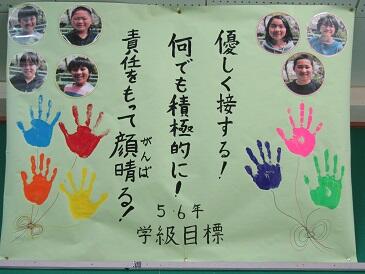 優しく接する！
何でも積極的に！
責任をもって顔晴る！
がんば
5・6年
学級目標